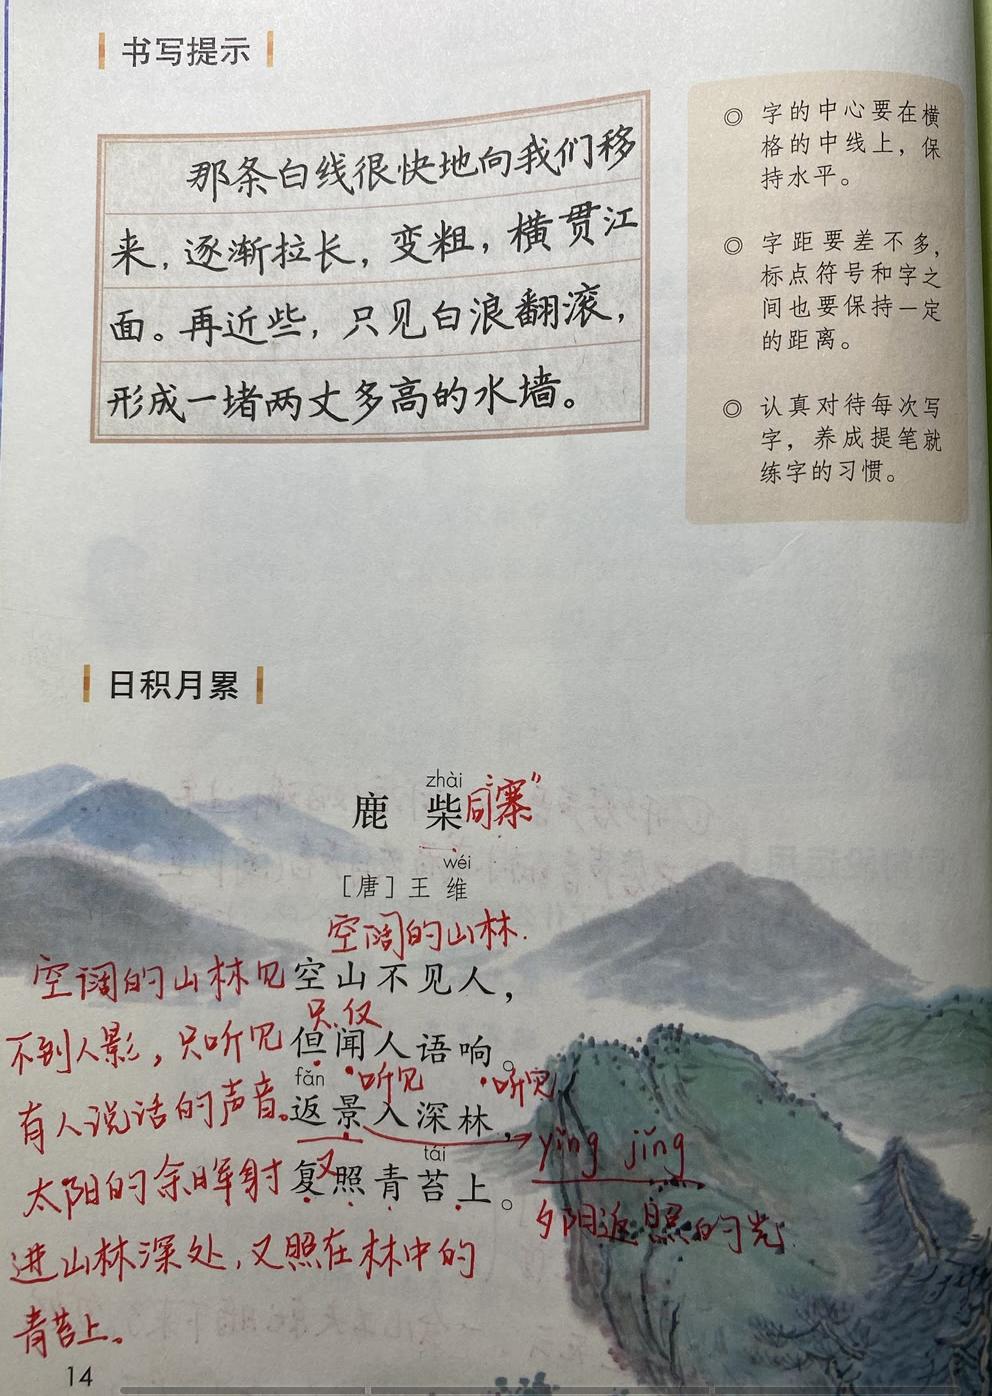 书写提示
那条白线很快地向我们移
来，逐渐拉长，变粗，横贯江
面。再近些，只见白浪翻滚，
形成一堵两丈多高的水墙。
◎ 字的中心要在横
格的中线上，保
持水平。
◎ 字距要差不多，
标点符号和字之
间也要保持一定
的距离。
◎ 认真对待每次写
字，养成提笔就
练字的习惯。
日积月累
zhài
鹿柴同“寨”
wéi
［唐］王维
空阔的山林.
空山不见人，
只仅
但闻人语响。
听见 听见
fǎn
返景入深林，
yǐng jǐng
tái
复照青苔上。
又
夕阳返照的光
空阔的山林见
不到人影，只听见
有人说话的声音。
太阳的余晖射
进山林深处，又照在林中的
青苔上。
14